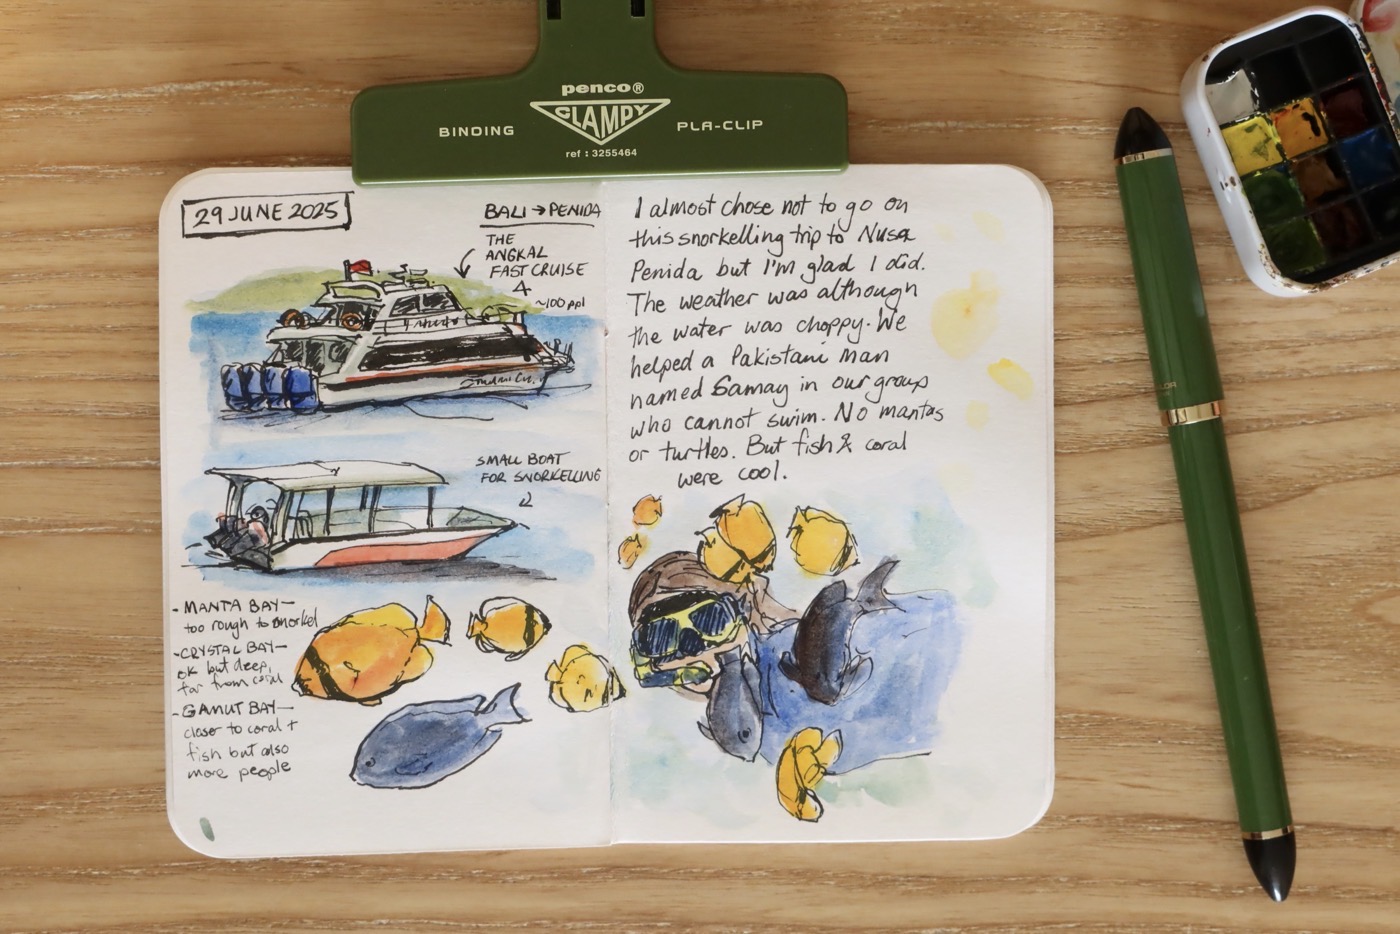 penco®
CLAMPY
BINDING
PLA-CLIP
ref : 3255464
29 JUNE 2025
BALI → PENIDA
THE
ANGKAL
FAST CRUISE
~100 ppl
SMALL BOAT
FOR SNORKELLING
- MANTA BAY—
too rough to snorkel
- CRYSTAL BAY—
ok but deep,
far from coral
- GAMUT BAY—
closer to coral +
fish but also
more people
I almost chose not to go on
this snorkelling trip to Nusa
Penida but I'm glad I did.
The weather was although
the water was choppy. We
helped a Pakistani man
named Samay in our group
who cannot swim. No mantas
or turtles. But fish & coral
were cool.